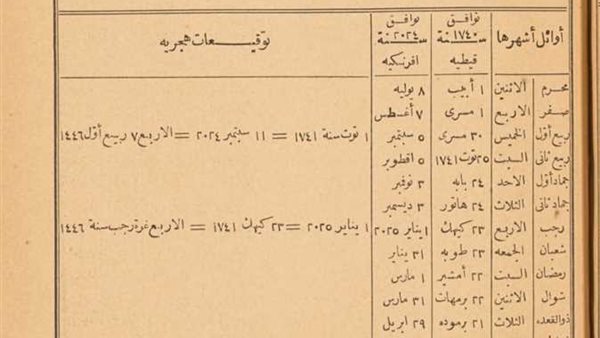 أوائل أشهرها توافق ١٧٤٠ سنة قبطيه توافق ٢٠٢٤ سنة افرنكيه توقيعات هجريه
محرم الاثنين ١ أبيب ٨ يوليه
صفر الاربع ١ مسرى ٧ أغسطس
ربيع أول الخميس ٣٠ مسرى ٥ سبتمبر ١ توت سنة ١٧٤١ = ١١ سبتمبر ٢٠٢٤ = الاربع ٧ ربيع أول ١٤٤٦
ربيع ثانى السبت ٢٥ توت ١٧٤١ ٥ اقطوبر
جماد أول الاحد ٢٤ بابه ٣ نوفمبر
جماد ثانى الثلاث ٢٤ هاتور ٣ ديسمبر
رجب الاربع ٢٣ كيهك ١ يناير ٢٠٢٥ ١ يناير ٢٠٢٥ = ٢٣ كيهك ١٧٤١ = الاربع غرة رجب سنة ١٤٤٦
شعبان الجمعه ٢٣ طوبه ٣١ يناير
رمضان السبت ٢٢ أمشير ١ مارس
شوال الاثنين ٢٢ برمهات ٣١ مارس
ذوالقعده الثلاث ٢١ برموده ٢٩ ابريل